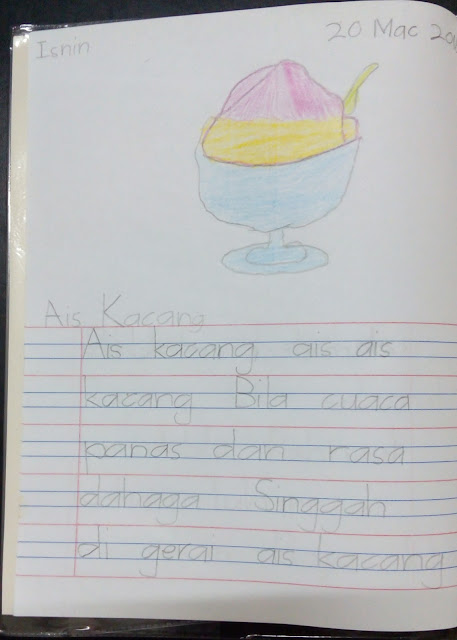 Isnin
20 Mac
Ais Kacang
Ais kacang ais ais
kacang Bila cuaca
panas dan rasa
dahaga Singgah
di gerai ais kacang